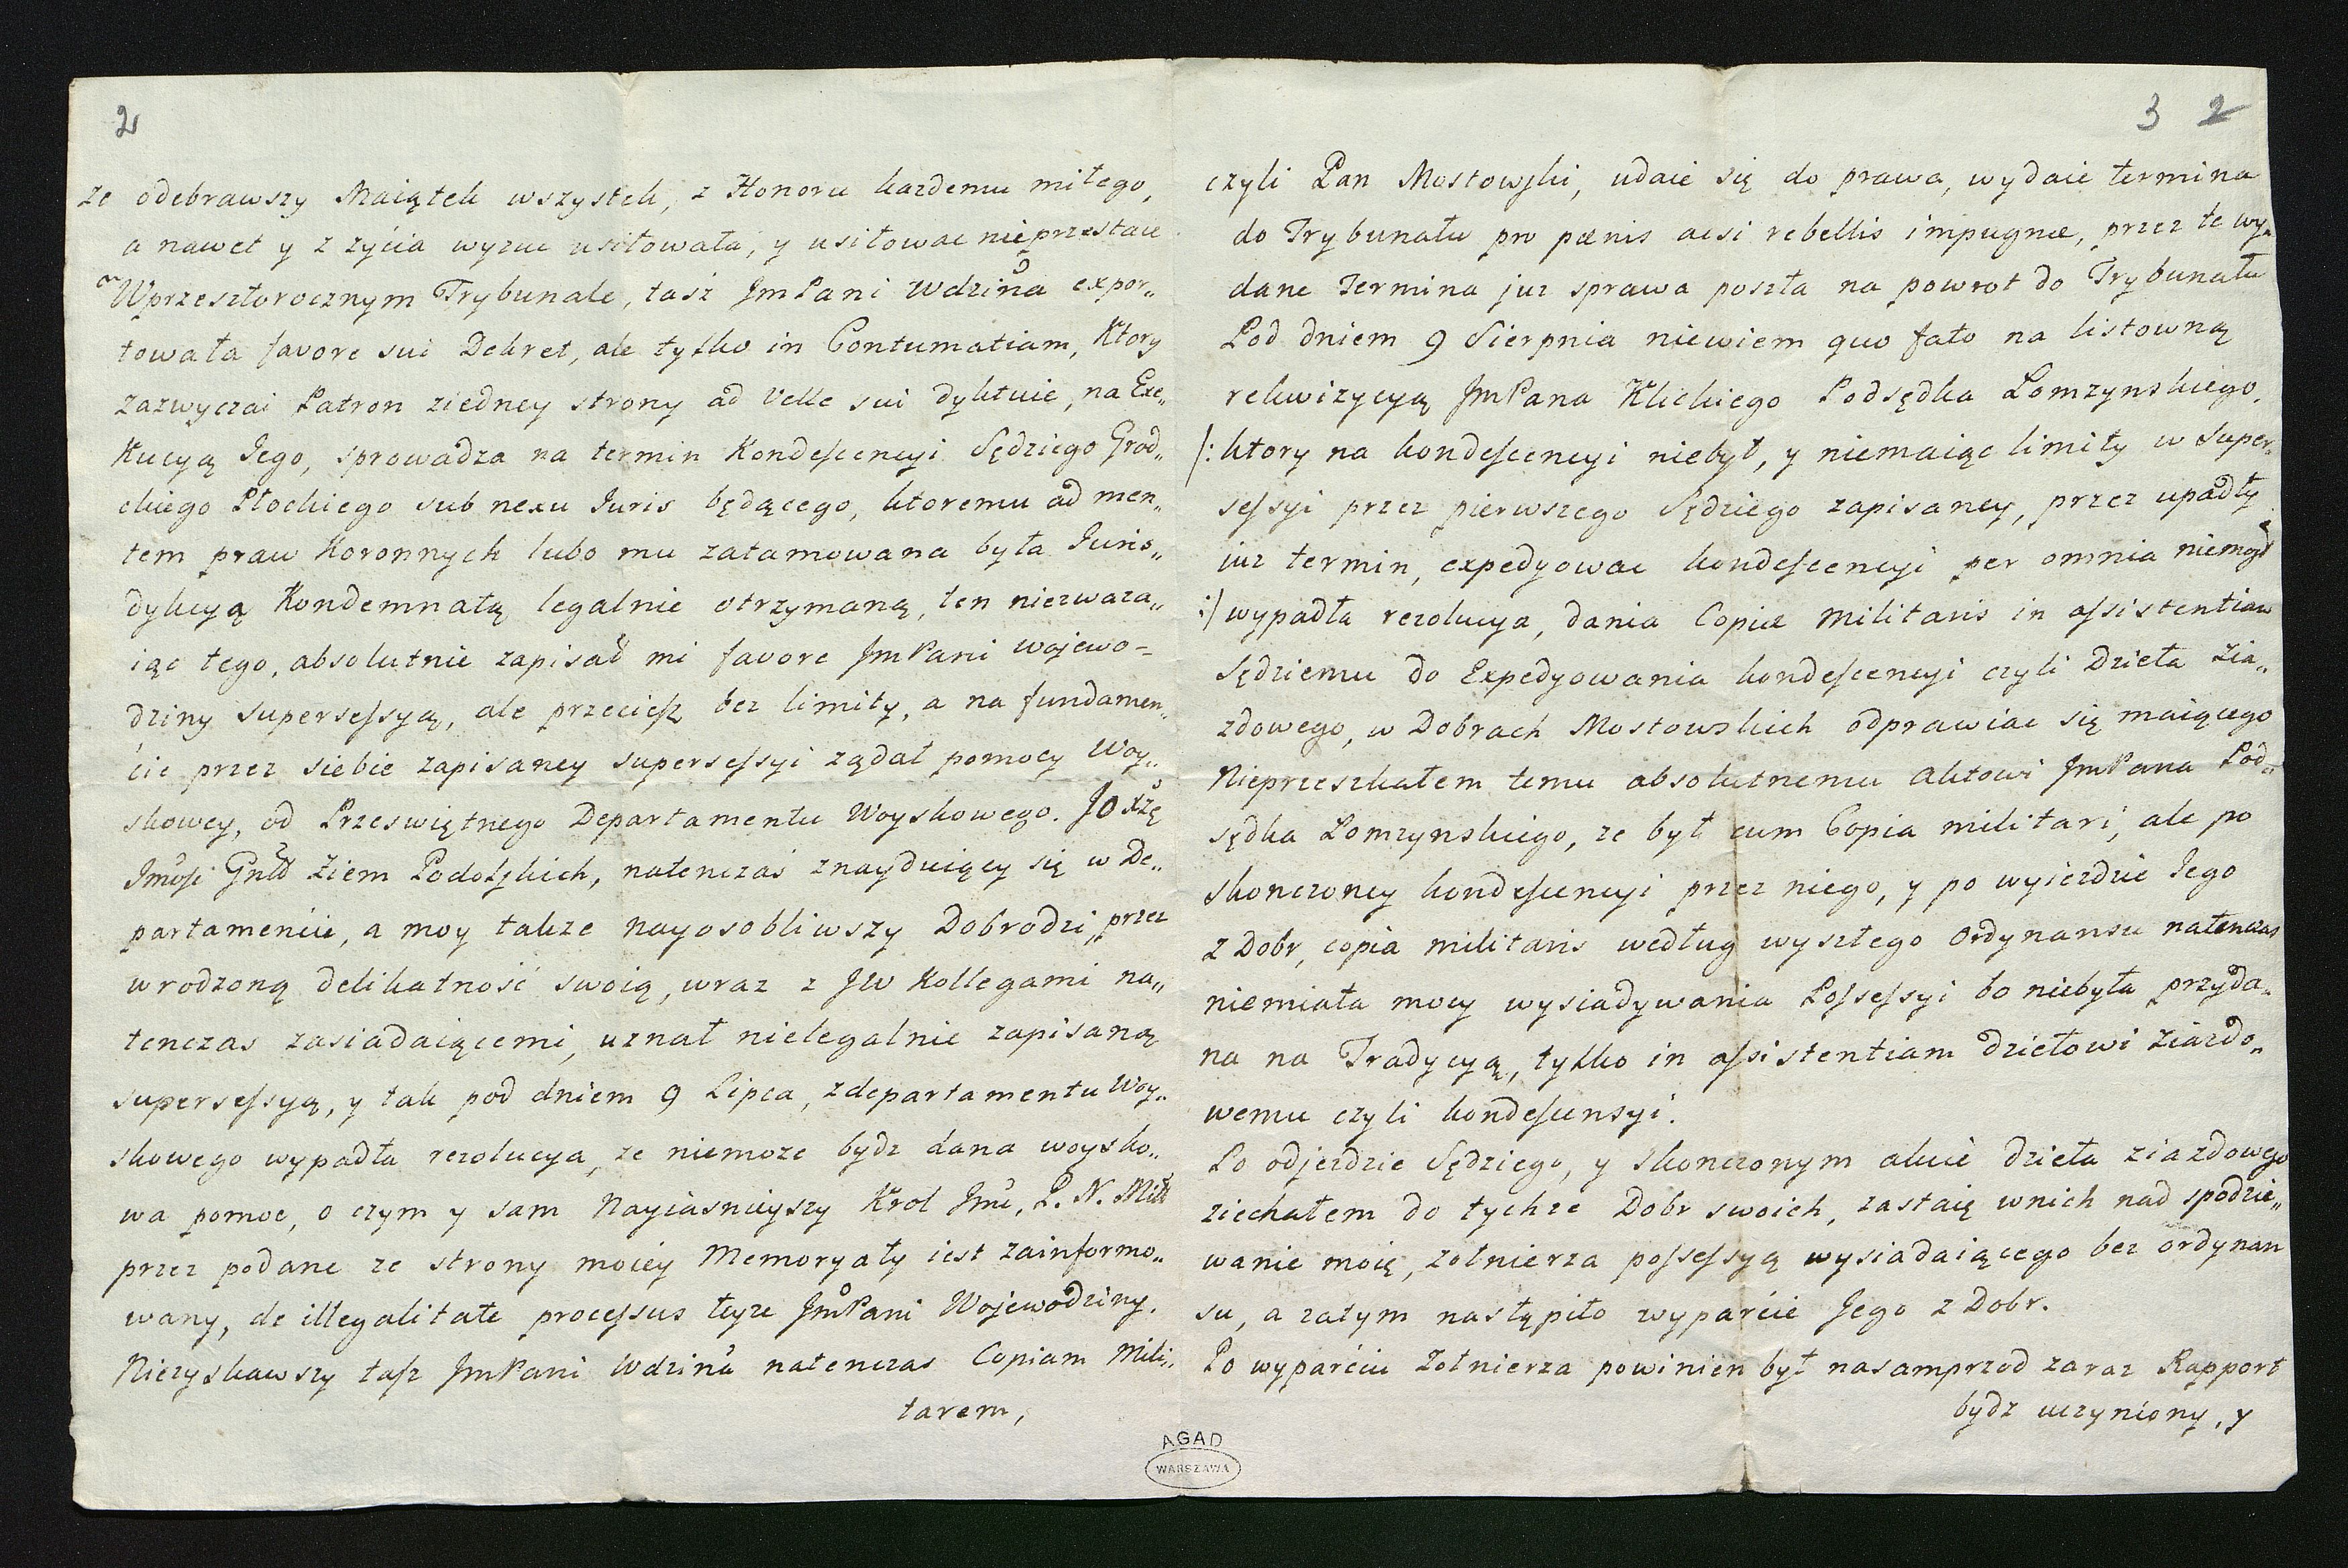 2
ze odebrawszy Maiątek wszystek, z Honoru kazdemu miłego,
a nawet y z zyćia wyzuć usiłowała, y usiłowac nieprzestaie
Wprzeszłorocznym Trybunale, taśż JmPani Wdzina expor„
towała favore sui Dekret, ale tylko in Contumatiam, Ktory
zazwyczai Patron ziedney strony ad Velle sui dyktuie, na Exe„
Kucyą Jego, sprowadza na termin Kondeſcencyi Sędziego Grod„
ckiego Płockiego sub nexu Juris będącego, ktoremu ad men„
tem praw Koronnych lubo mu zatamowana była Juris„
dykcyą Kondemnatą legalnie otrzymaną, ten niezwaza„
iąc tego, absolutnie zapisał mi favore JmPani wojewo=
dziny superseſsyą, ale przecieſz bez limity, a na fundamen„
cie przez siebie zapisaney superseſsyi ządał pomocy Woy„
skowey, od Przeswiętnego Departamentu Woyskowego. JO Xżę
Jmość Gnłł Ziem Podolſkich, natenczas znayduiący się w De„
partamenćie, a moy takze nayosobliwszy Dobrodzi, przez
wrodzoną delikatność swoią, wraz z JW Kollegami na„
tenczas zasiadaiącemi, uznał nielegalnie zapisaną
superseſsyą, y tak pod dniem 9 Lipca, zdepartamentu Woy„
skowego wypadła rezolucya, ze niemoze bydz dana woysko„
wa pomoc, o czym y sam Nayiasnieyszy Krol Jmć, P. N. Miłł
przez podane ze strony moiey Memoryały iest zainformo„
wany, de illegalitate proceſsus teyze JmPani Wojewodziny.
Niezyskawszy taſz JmPani Wdzina natenczas Copiam Mili„
tarem,
3 2
czyli Pan Mostowſki, udaie się do prawa, wydaie termina
do Trybunału pro pœnis acsi rebellis impugnæ, przez te wy„
dane Termina juz sprawa poszła na powrot do Trybunału
Pod dniem 9 Sierpnia niewiem quo fato na listowną
rekwizycyą JmPana Klickiego Podsędka Łomzynskiego.
/: ktory na kondeſcencyi niebył, y niemaiąc limity w Super„
seſsyi przez pierwszego Sędziego zapisaney, przez upadły
iuz termin, expedyowac kondeſcencyi per omnia niemogł
:/ wypadła rezolucya, dania Copiæ Militaris in aſsistentiam
Sędziemu do Expedyowania kondeſcencyi czyli Dzieła Zia„
zdowego, w Dobrach Mostowskich odprawiac się maiącego
Nieprzeszkałem temu absolutnemu Aktowi JmPana Pod„
sędka Łomzynskiego, ze był cum Copia militari, ale po
skonczoney kondeſcencyi przez niego, y po wyiezdzie Jego
z Dobr, copia militaris według wyszłego Ordynansu natenczas
niemiała mocy wysiadywania Poſseſsyi bo niebyła przyda„
na na Tradycyą, tylko in aſsistentiam dziełowi Ziazdo„
wemu czyli kondeſcensyi.
Po odjezdzie Sędziego, y skonczonym akcie dzieła ziazdowego
ziechałem do tychze Dobr swoich, zastaię wnich nad spodzie„
wanie moię, zołnierza poſseſsyą wysiadaiącego bez ordynan
su, a zatym nastąpiło wyparćie Jego z Dobr.
Po wyparćiu Zołnierza powinien był nasamprzod zaraz Rapport
bydz uczyniony, y
AGAD
WARSZAWA